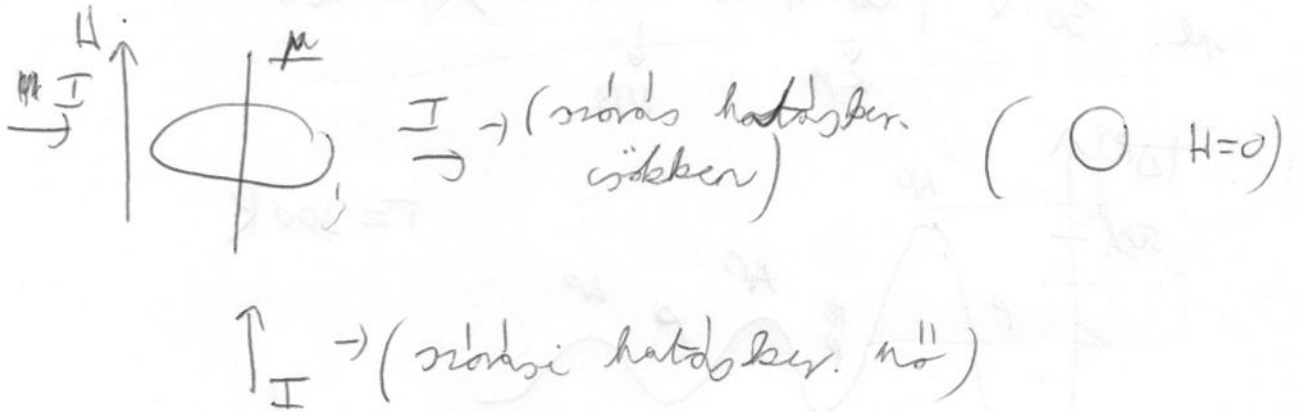 H μ
I I → (szórás hatásker. ( H=0)
csökken)
I → (szórási hatásker. nő)